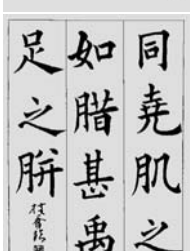 同堯肌之
如腊甚禹
足之胼